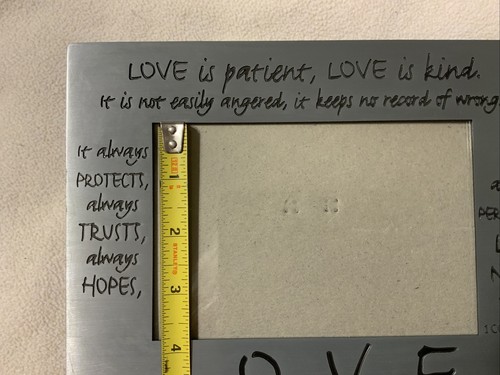 LOVE is patient, LOVE is kind.
It is not easily angered, it keeps no record of wrong
It always
PROTECTS,
always
TRUSTS,
always
HOPES,
1
2
STANLEY
3
4
LOVE